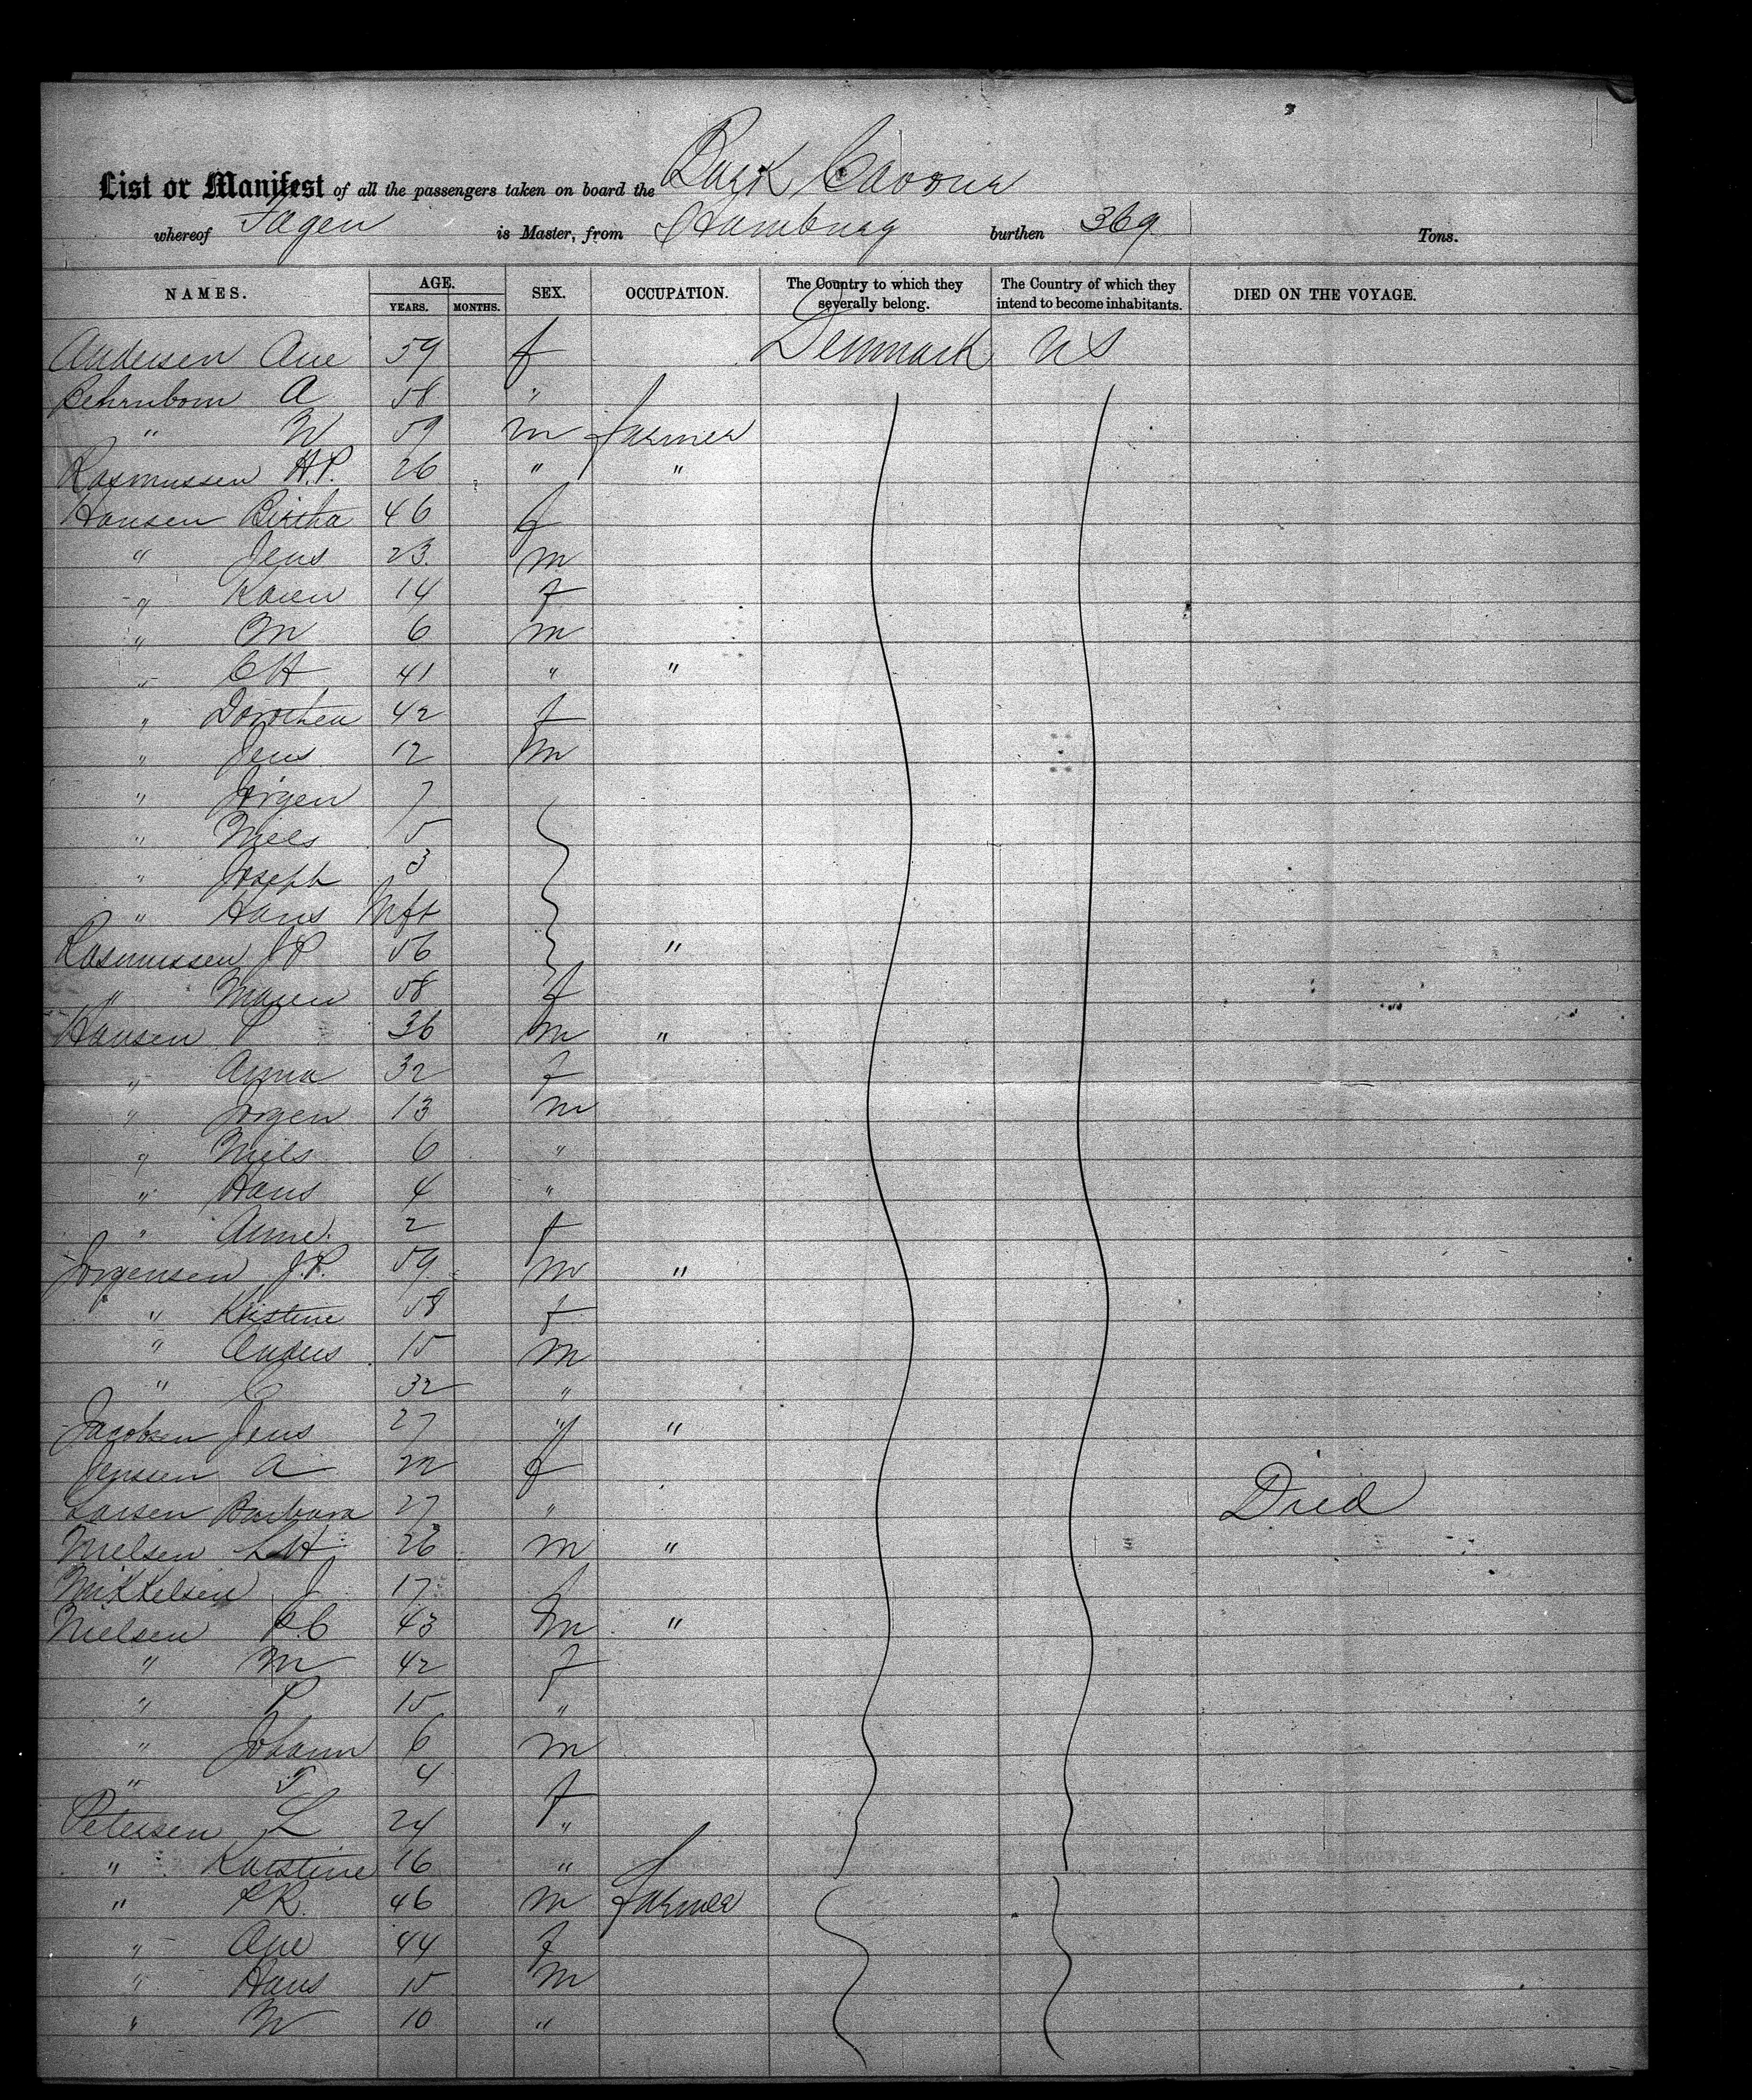 List or Manifest of all the passengers taken on board the Bark Cavour
whereof Fagen is Master, from Hamburg burthen 369 Tons.
NAMES. AGE. YEARS. MONTHS. SEX. OCCUPATION. The Country to which they severally belong. The Country of which they intend to become inhabitants. DIED ON THE VOYAGE.
Andersen Ane 59 f Denmark US
Behrnbom A 58 "
" W 59 m farmer
Rasmussen H.P. 26 " "
Hansen Birtha 46 f
" Jens 23 m
" Karen 14 f
" M 6 m
" CH 41 " "
" Dorothea 42 f
" Jens 12 m
" Jörgen 7
" Niels 5
" Joseph 3
" Hans Inft
Rasmussen J P 56 "
" Maren 58 f
Hansen P 36 m "
" Anna 32 f
" Jorgen 13 m
" Niels 6 "
" Hans 4 "
" Anne 2 f
Jorgensen J.P. 59 m "
" Kristine 58 f
" Anders 15 m
" C 32 "
Jacobsen Jens 27 " "
Jenssen A 22 f
Larsen Barbara 27 " Died
Nielsen LH 26 m "
Mikkelsen J 17 f
Nielsen P.C 43 m "
" M 42 f
" P 15 "
" Johann 6 m
" 4 f
Petersen L 24 "
" Karstine 16 "
" PR. 46 m farmer
" Ane 44 f
" Hans 15 m
" N 10 "